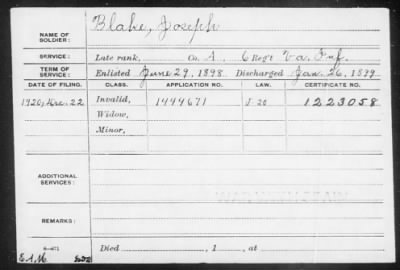 NAME OF SOLDIER: Blake, Joseph
SERVICE: Late rank, Co. A, 6 Reg't Va. Inf.
TERM OF SERVICE: Enlisted June 29, 1898. Discharged Jan. 26, 1899
DATE OF FILING. CLASS. APPLICATION NO. LAW. CERTIFICATE NO.
1920, Dec. 22 Invalid, 1444671 J-20 1223058
Widow,
Minor,
ADDITIONAL SERVICES:
REMARKS:
Died , 1 , at